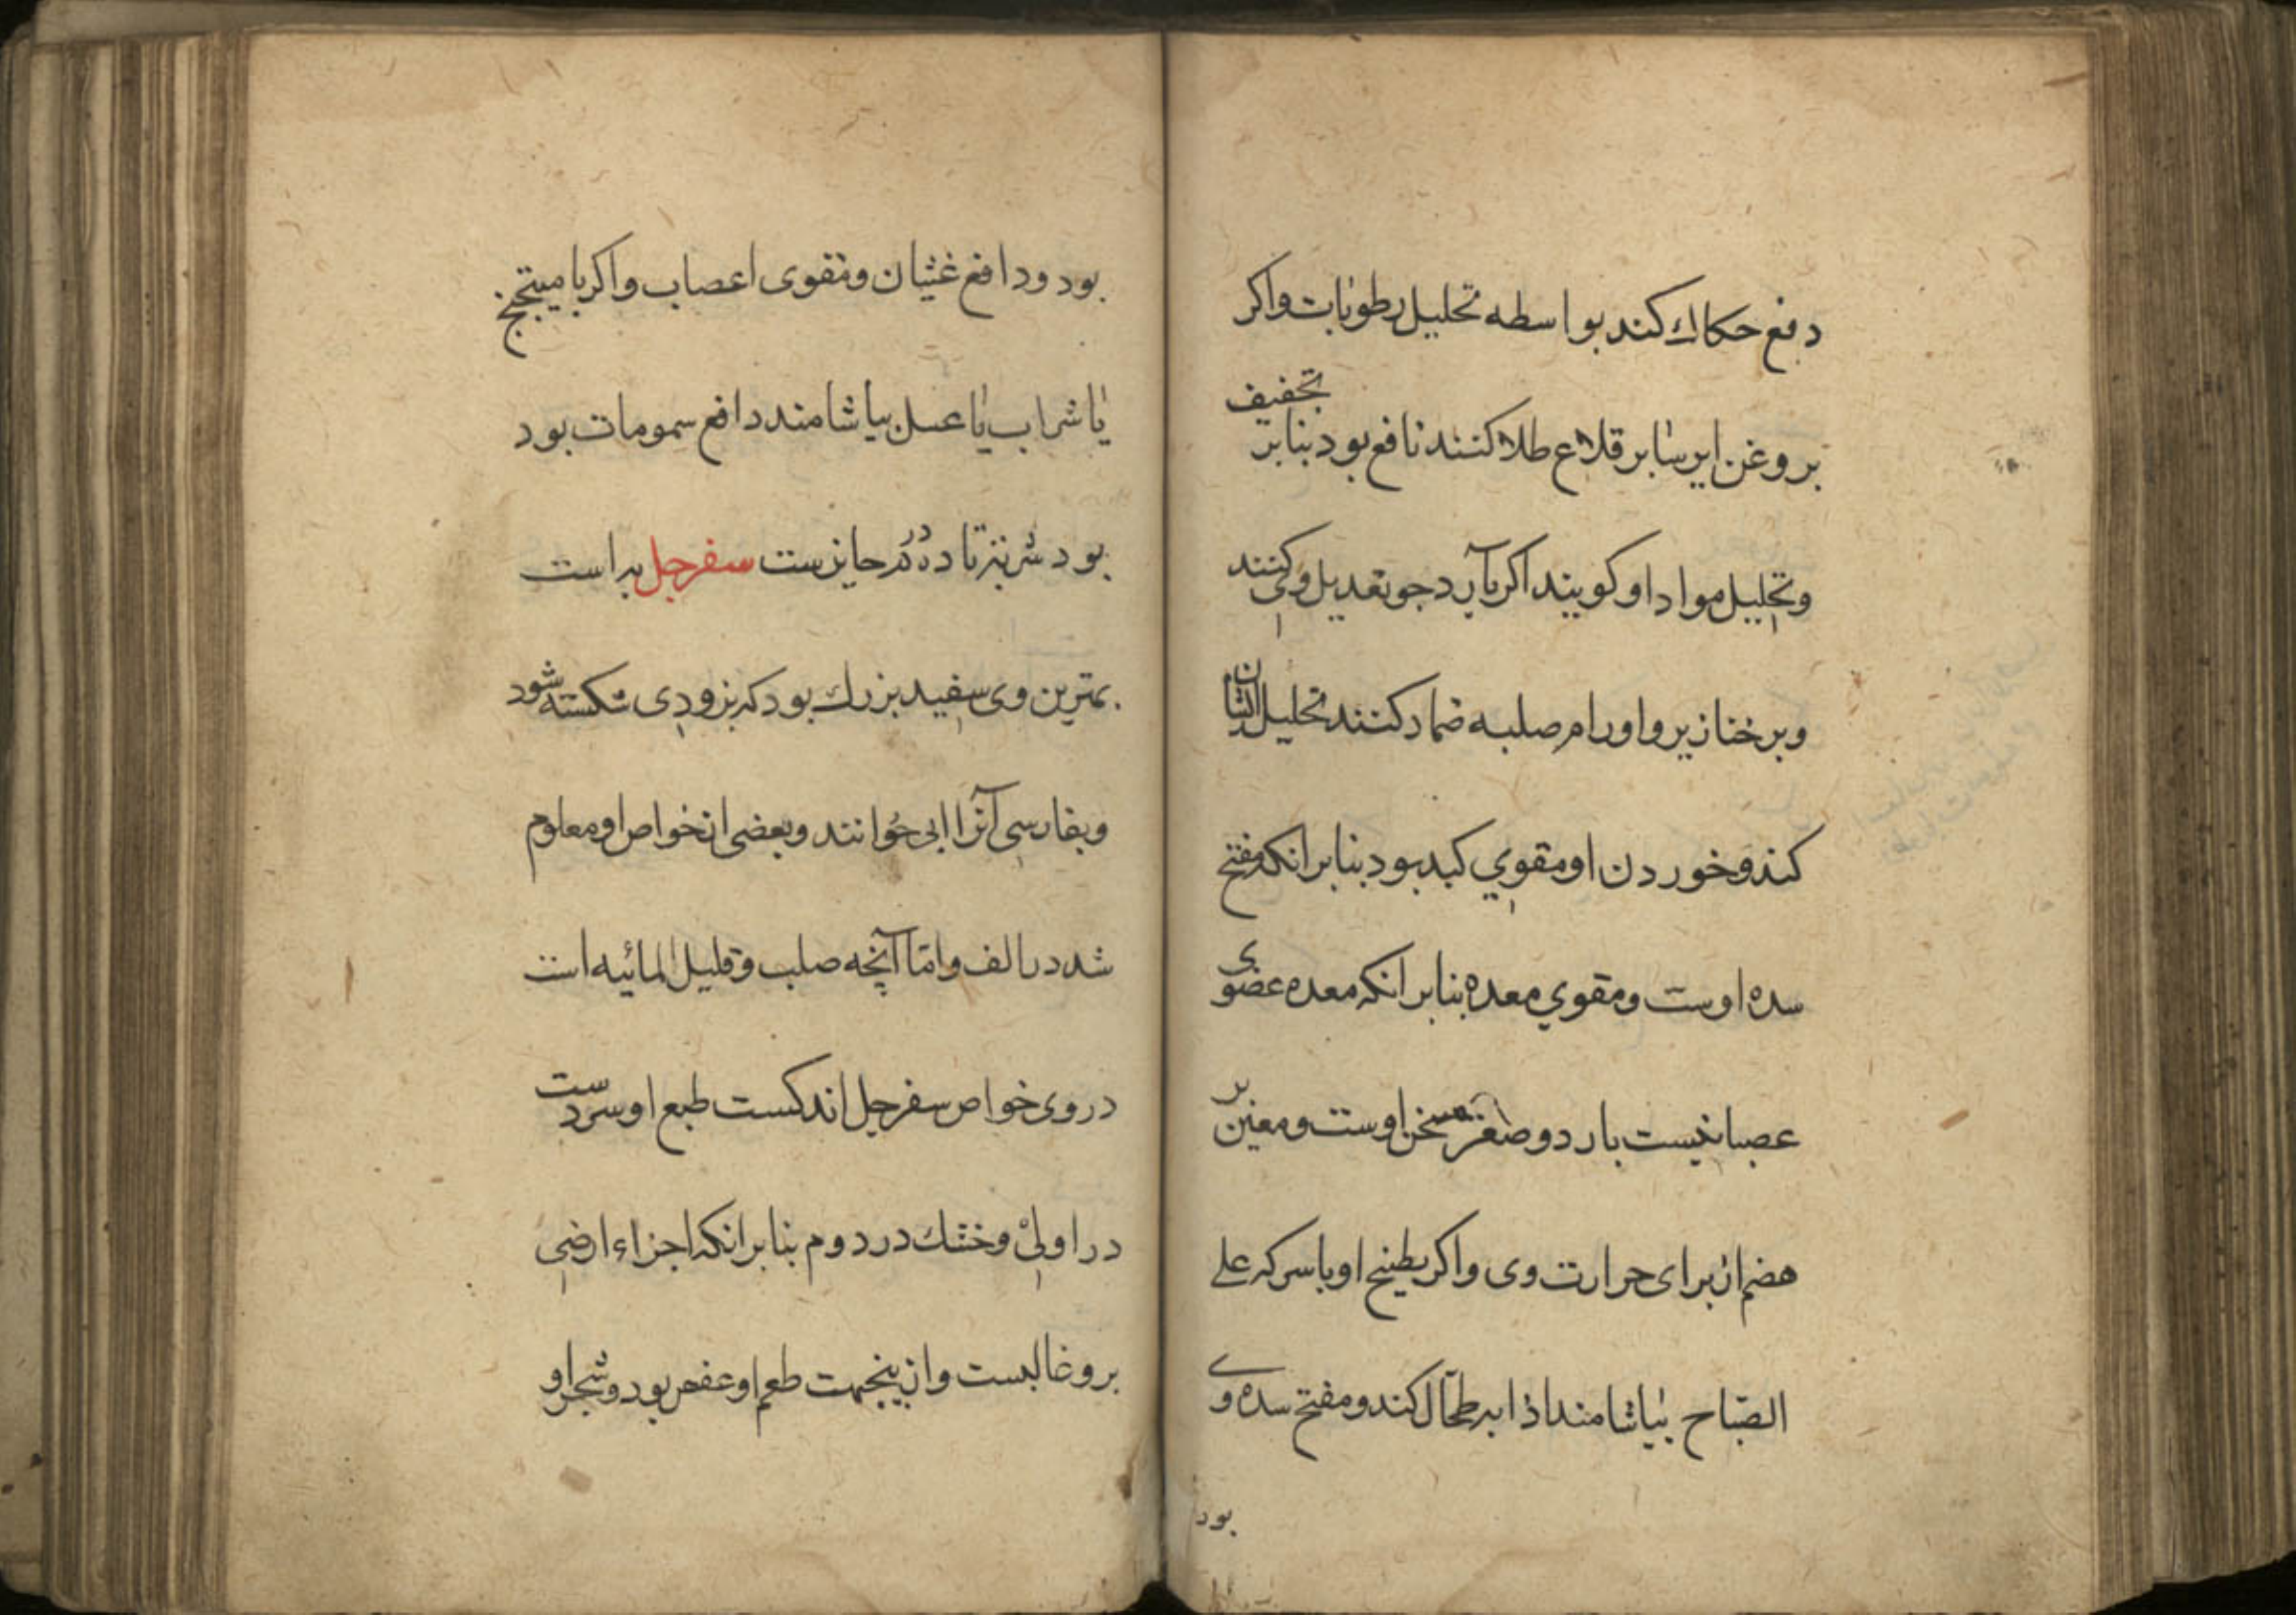 دفع حکاك کند بواسطه تحلیل رطوبات واکر
بروغن ایرسا بر قلاع طلا کنند نافع بود بنا بر تجفیف
وتحلیل مواد او کویند اکر با آرد جو تعدیل وی کنند
وبر خنازیر واورام صلبه ضماد کنند تحلیل ایشان
کند وخوردن او مقوي کبد بود بنا بر انکه مفتح
سده اوست ومقوي معده بنا بر انکه معده عضوی
عصبانیست بارد و مسخن اوست ومعین بر
هضم از برای حرارت وی واکر بطبیخ او با سرکه علی
الصّباح بیاشامند اذابه طحال کند ومفتح سده وی
بود
بود ودافع غثیان ومقوی اعصاب واکر با میبختج
یا شراب یا عسل بیاشامند دافع سمومات بود
بود شربتی تا ده درم جایزست سفرجل به است
بهترین وی سفید بزرك بود که بزودی شکسته شود
وبفارسی آنرا ابی خوانند وبعضی از خواص او معلوم
شد در الف وامّا آنچه صلب وقلیل المائیه است
در وی خواص سفرجل اندکست طبع او سردست
در اولی وخشك در دوم بنا بر انکه اجزاء ارضی
برو غالبست وازینجهت طعم او عفص بود وشجر او